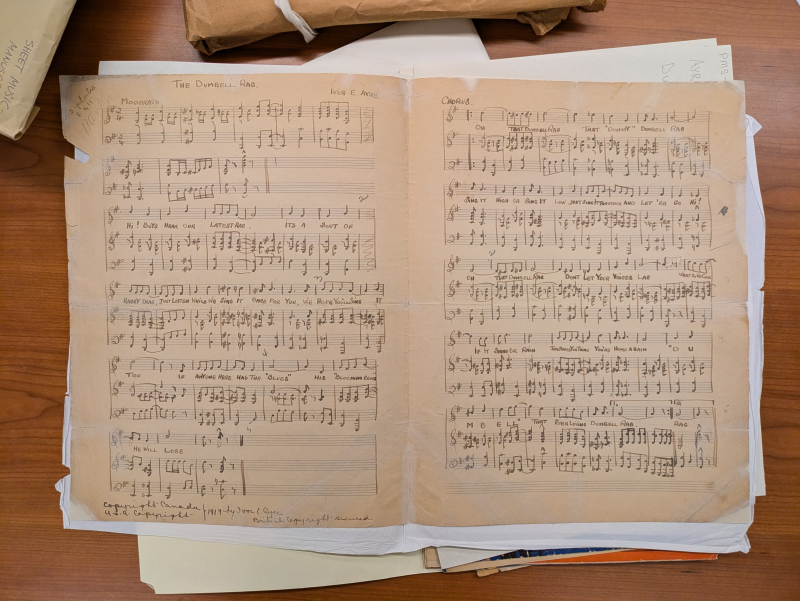 SHEET MUSIC-
THE DUMBELL RAG.
IVOR E. AYRE
MODERATO
HI! BOYS HEAR OUR LATEST RAG, ITS A SORT OF
RAGGY DRAG, JUST LISTEN WHILE WE SING IT OVER FOR YOU, WE HOPE YOU'LL SING IT
TOO IF ANYONE HERE HAS THE "BLUES" HIS BLOOMING BLUES
HE WILL LOSE
Copyright Canada / 1919 by Ivor E Ayre
U.S.A Copyright
British Copyright secured
CHORUS.
OH THAT DUMBELL RAG THAT DUMMY DUMBELL RAG
SING IT HIGH OR SING IT LOW JUST AND LET 'ER GO HI!
OH THAT DUMBELL RAG DONT LET YOUR VOICES LAG
IF IT SHINE OR RAIN AGAIN "D U
M B E L L THAT DUMBELL RAG RAG